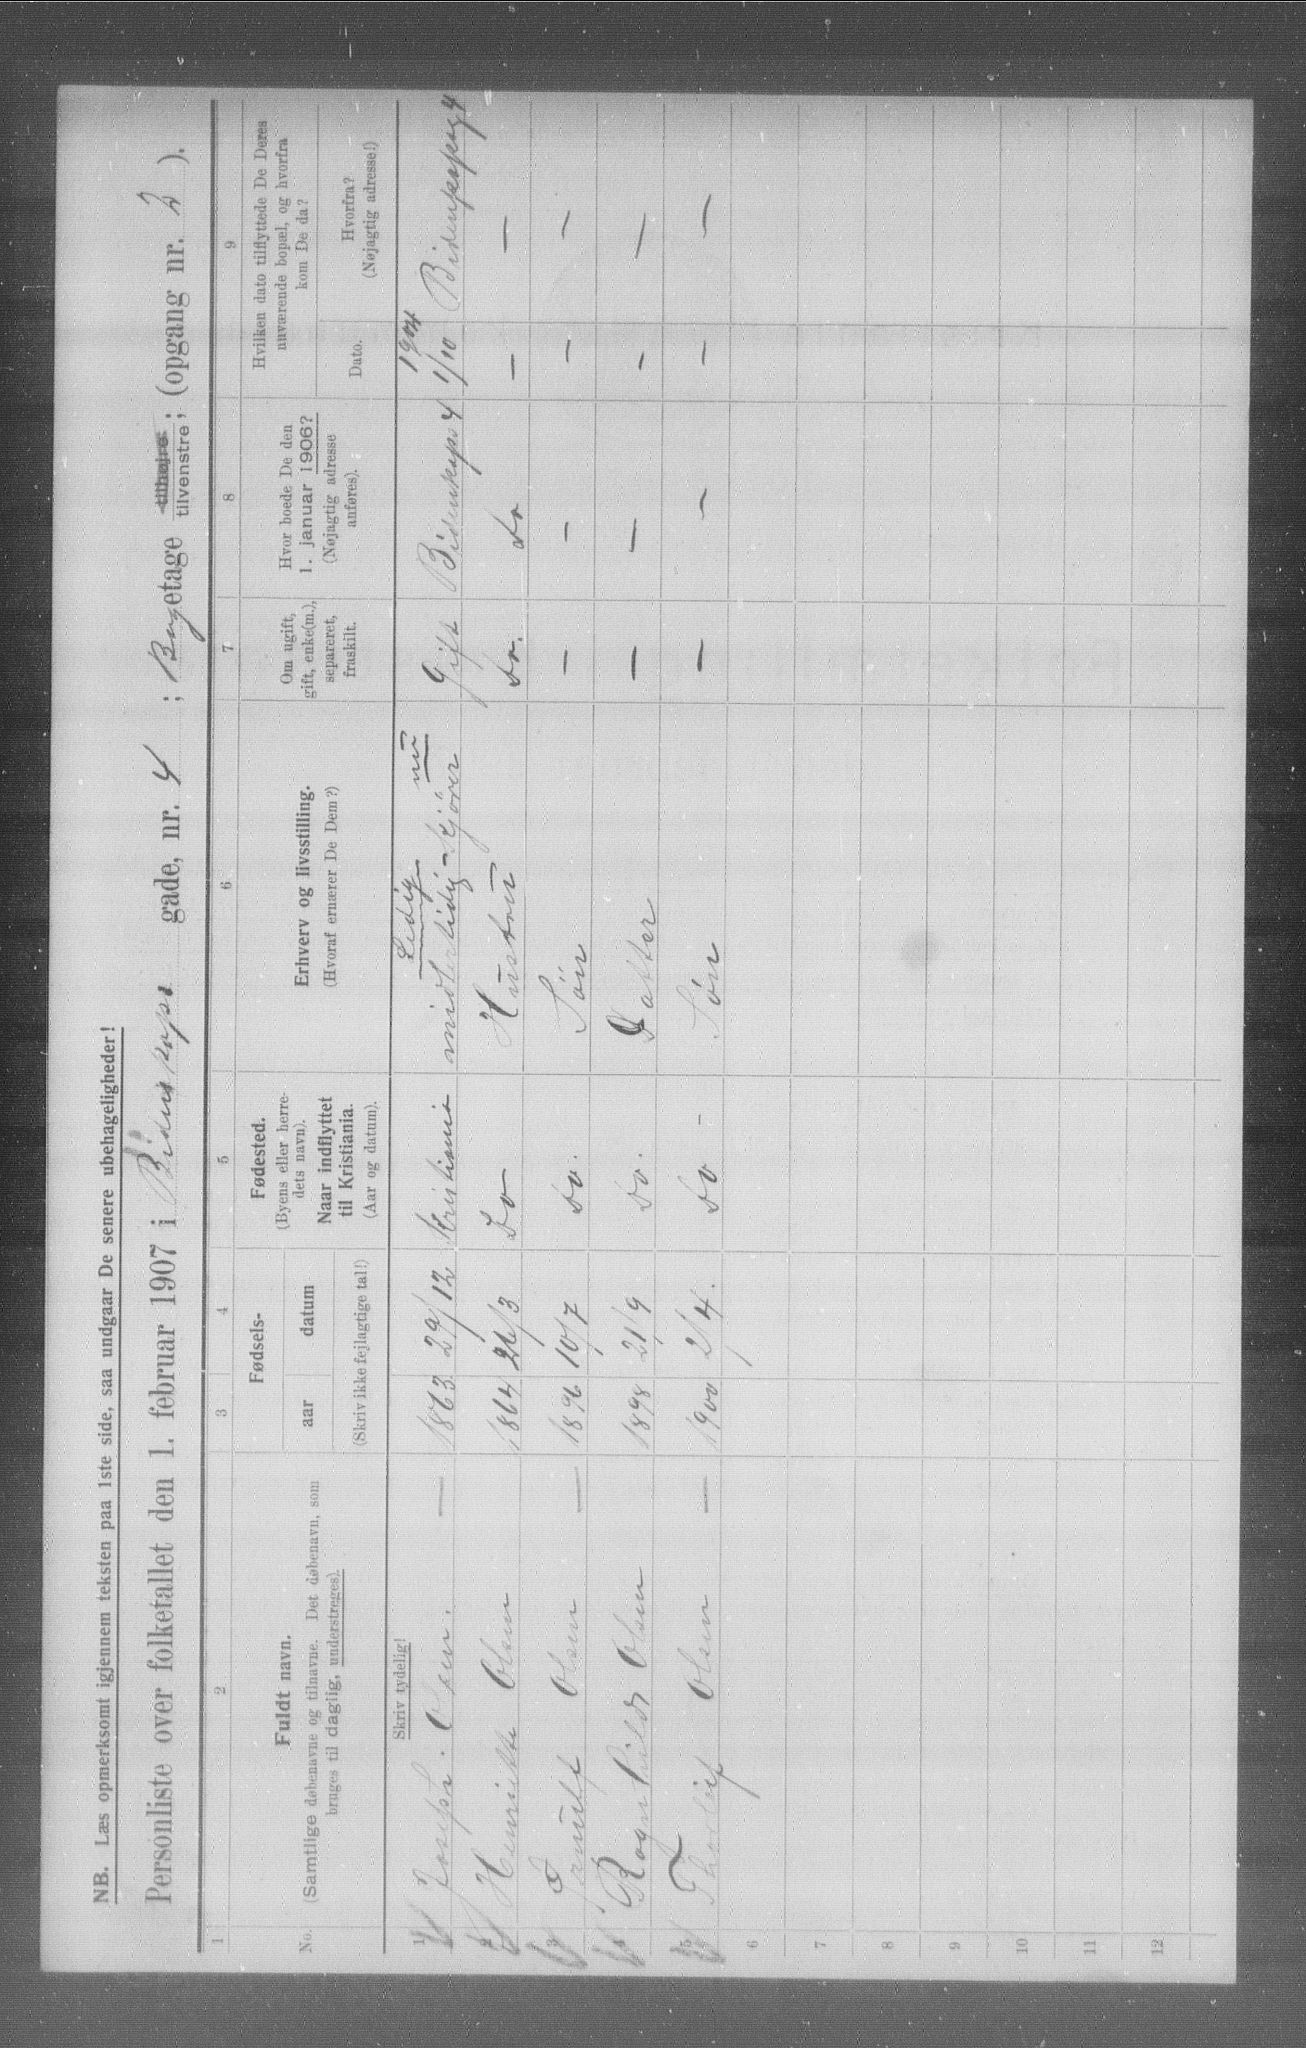 NB. Læs opmerksomt igjennem teksten paa 1ste side, saa undgaar De senere ubehageligheder!
Personliste over folketallet den 1. februar 1907 i Bidenkaps gade, nr. 4 ; Bagetage tilhøjre tilvenstre ; (opgang nr. 2 ).
1 2 3 4 5 6 7 8 9
No.
Fuldt navn.
(Samtlige døbenavne og tilnavne. Det døbenavn, som
bruges til daglig, understreges).
Fødsels-
aar datum
(Skriv ikke fejlagtige tal!)
Fødested.
(Byens eller herre-
dets navn).
Naar indflyttet
til Kristiania.
(Aar og datum).
Erhverv og livsstilling.
(Hvoraf ernærer De Dem?)
Om ugift,
gift, enke(m.),
separeret,
fraskilt.
Hvor boede De den
1. januar 1906?
(Nøjagtig adresse
anføres).
Hvilken dato tilflyttede De Deres
nuværende bopæl, og hvorfra
kom De da?
Dato.
Hvorfra?
(Nøjagtig adresse!)
Skriv tydelig!
Ledig nu 1904
1 Josef Olsen. — 1863 29/12 Kristiania midlertidig-kjører Gift Bidenkaps 4 1/10 Bidenkapsg 4
2 Henriette Olsen 1864 26/3 do Hustru do. do — —
3 Olsen — 1896 10/7 do. Sön — — — —
4 Ragnhild Olsen 1898 21/9 do. Datter — — — —
5 Thorleif Olsen — 1900 2/4. do - Søn — — — —
6
7
8
9
10
11
12